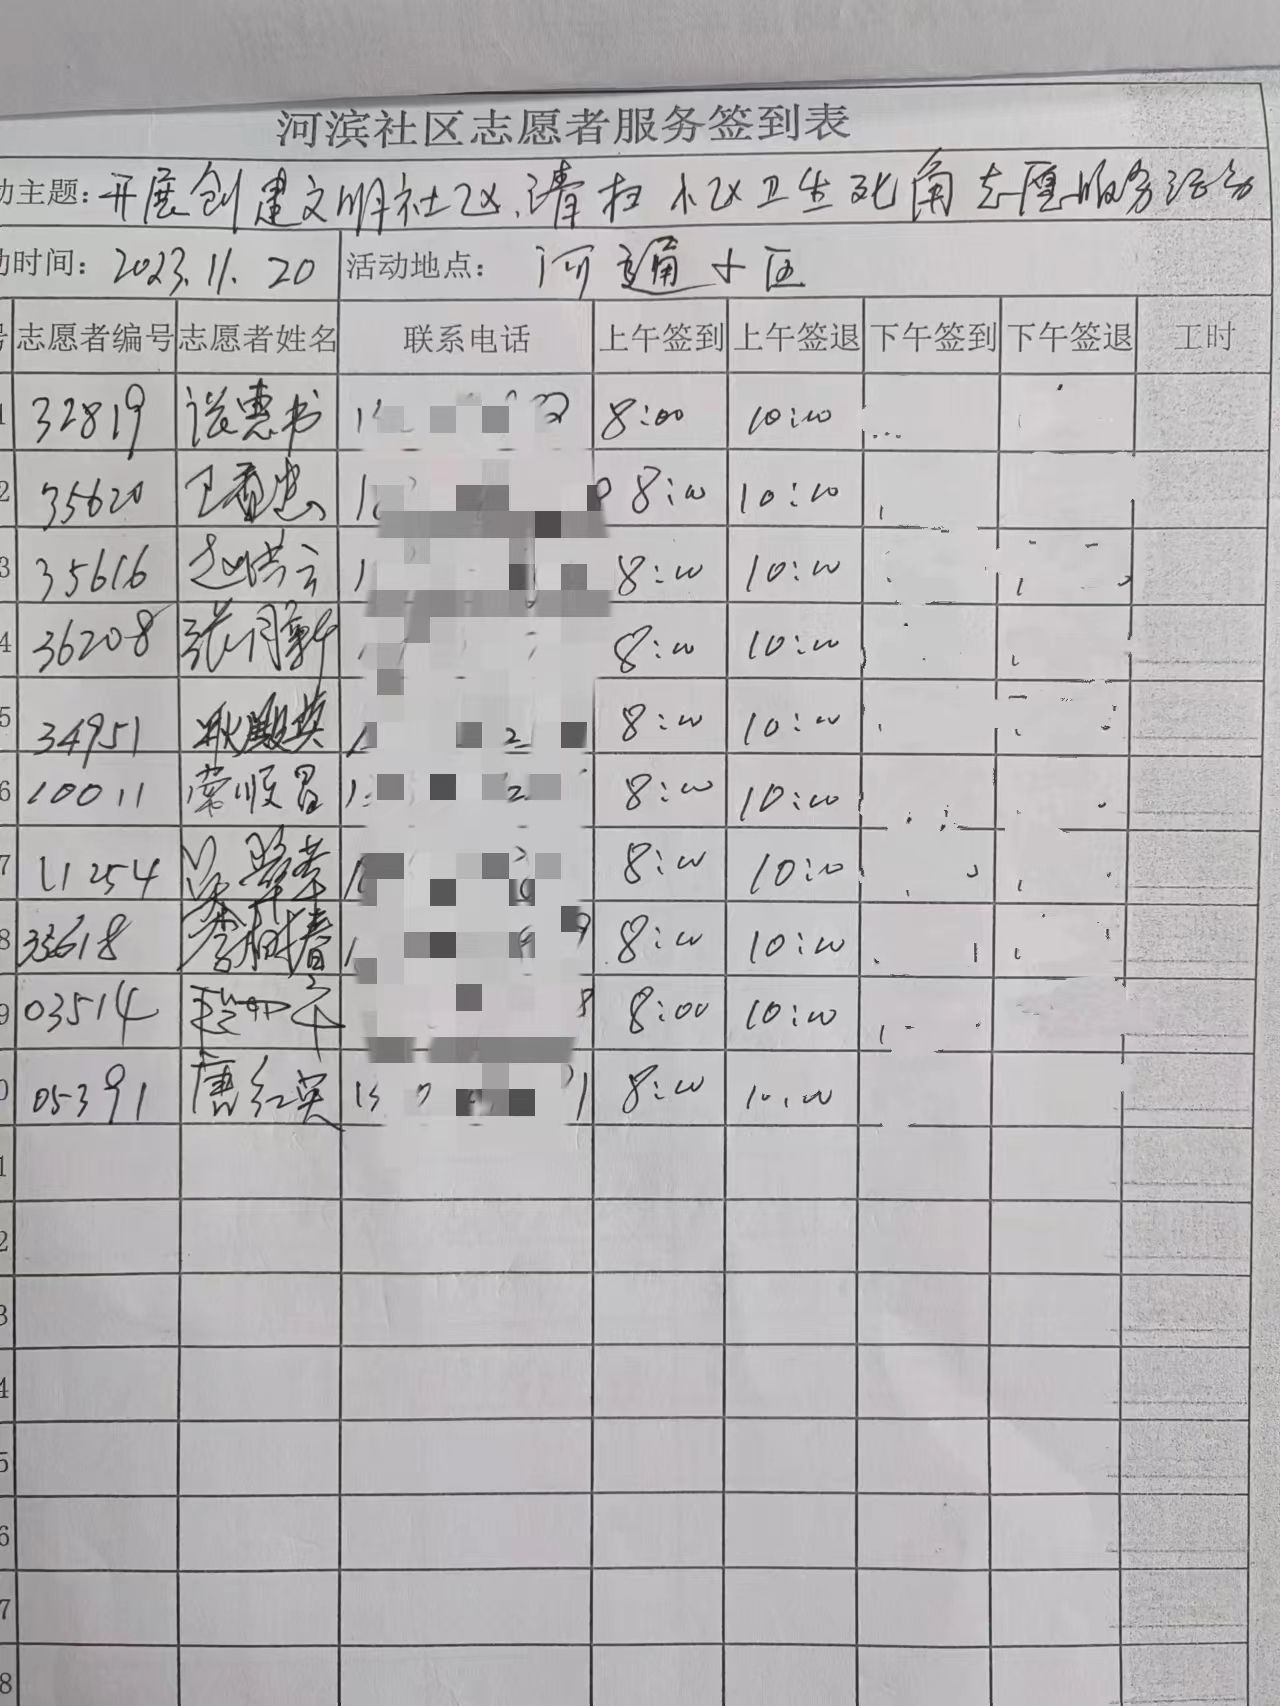 河滨社区志愿者服务签到表
动主题：开展创建文明社区、清扫小区卫生死角志愿服务活动
动时间：2023.11.20 活动地点：河通小区
号 志愿者编号 志愿者姓名 联系电话 上午签到 上午签退 下午签到 下午签退 工时
1 32819 谈惠书 8:00 10:00
2 35620 王香忠 8:00 10:00
3 35616 赵洪云 8:00 10:00
4 36208 张月新 8:00 10:00
5 34951 8:00 10:00
6 10011 常顺昌 8:00 10:00
7 11254 8:00 10:00
8 35618 李桂春 8:00 10:00
9 03514 8:00 10:00
0 05391 唐红英 8:00 10:00
1
2
3
4
5
6
7
8